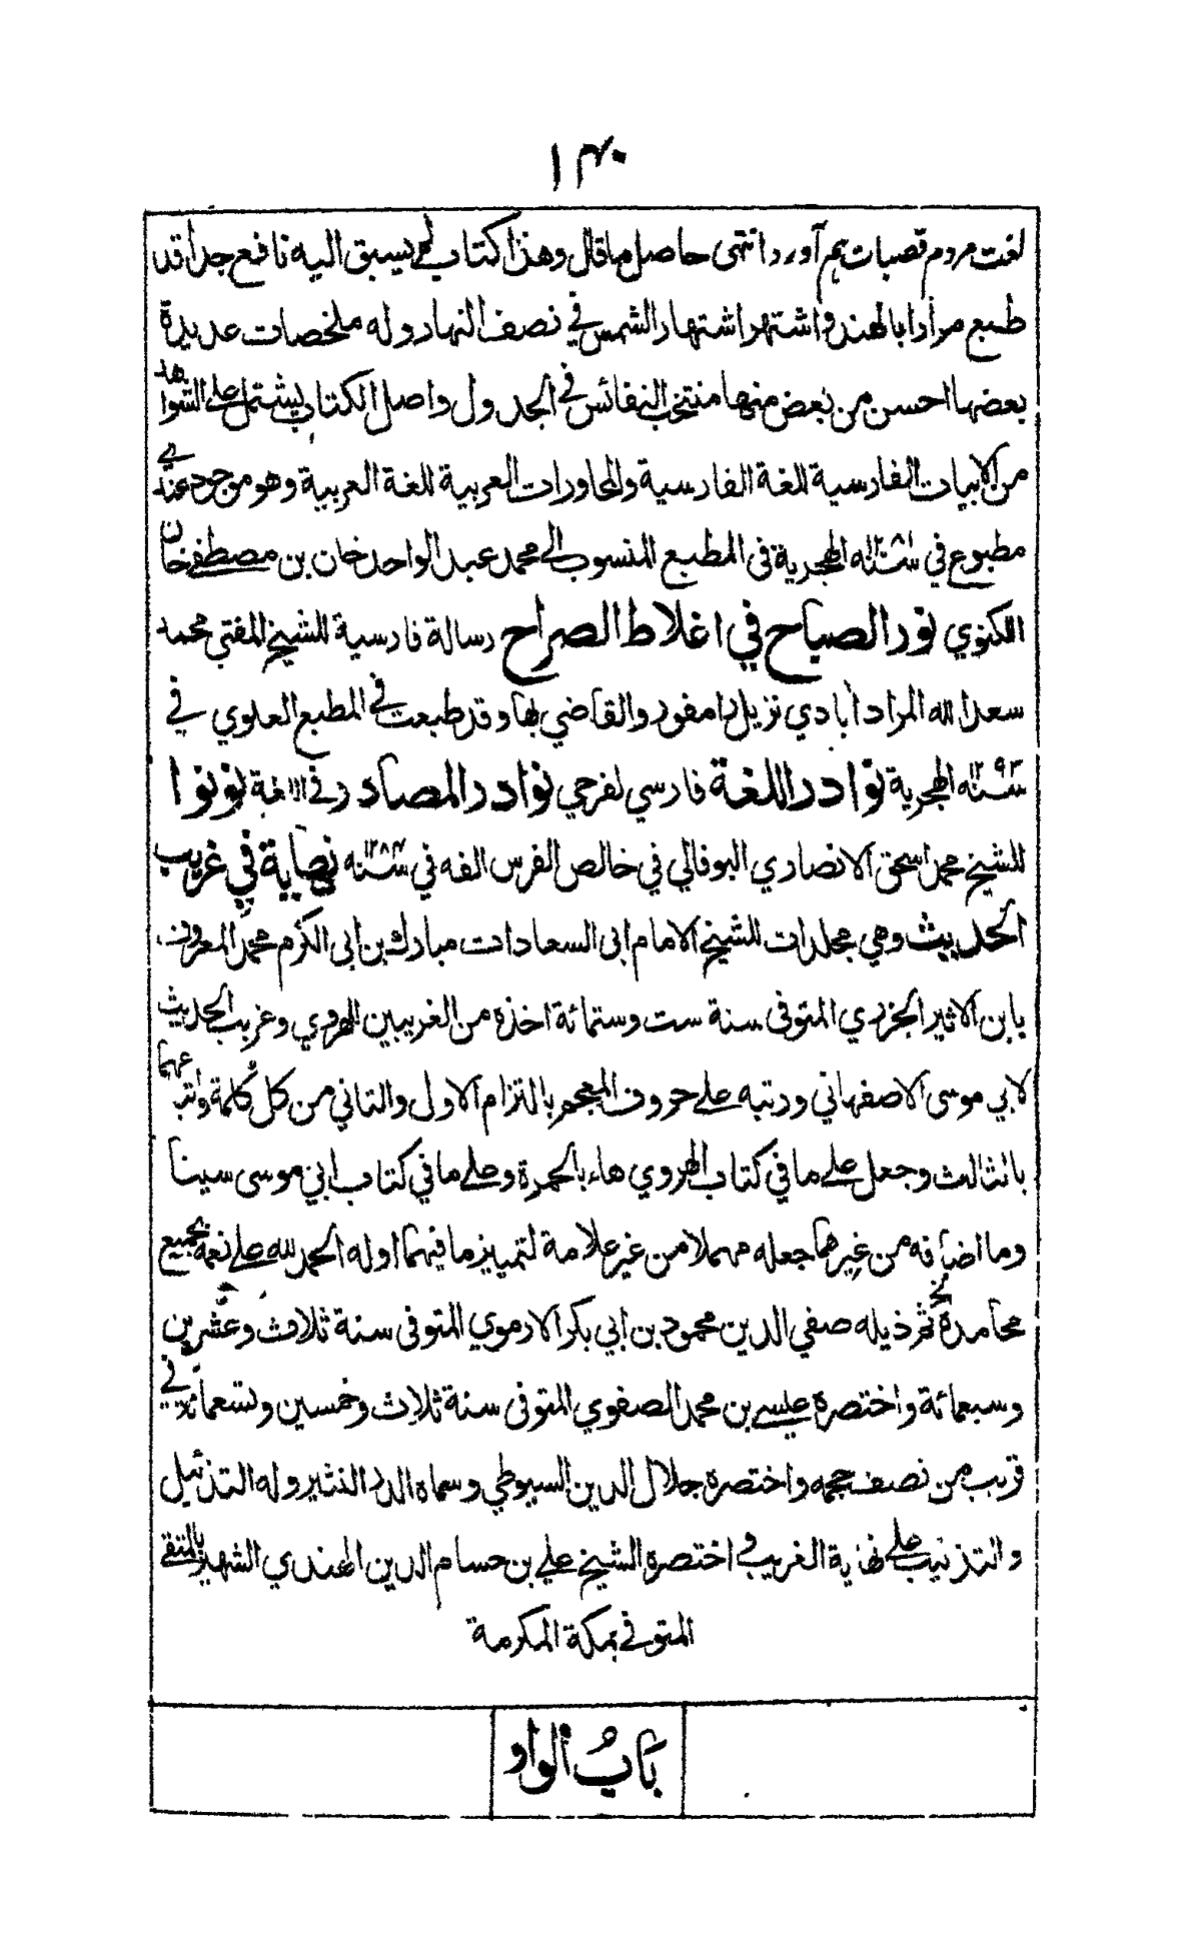 ١٣٠
لغت مردم قصبات بهم آورد انتهى حاصل ما قال وهذا كتاب لم يسبق اليه نافع جدا قد
طبع مرارا بالهند واشتهر اشتهار الشمس في نصف النهار وله ملخصات عديدة
بعضها احسن من بعض منها منتخب النفائس في الجدول واصل الكتاب يشتمل على الشواهد
من الابيات الفارسية للغة الفارسية والمحاورات العربية للغة العربية وهو موجود عندي
مطبوع في سنة ١٢٨١ه الهجرية في المطبع المنسوب الى محمد عبد الواحد خان بن مصطفى خان
اللكنوي نور الصباح في اغلاط الصراح رسالة فارسية للشيخ المفتي محمد
سعد الله المرادآبادي نزيل رامفور والقاضي بها وقد طبعت في المطبع العلوي في
سنة ١٢٩٣ه الهجرية نوادر اللغة فارسي لفرحي نوادر المصادر في اللغة نو نوا
للشيخ محمد اسحق الانصاري البوفالي في خالص الفرس الفه في سنة ١٢٨٣ه نهاية في غريب
الحديث وهي مجلدات للشيخ الامام ابى السعادات مبارك بن ابى الكرم محمد المعروف
بابن الاثير الجزري المتوفى سنة ست وستمائة اخذه من الغريبين للهروي وغريب الحديث
لابي موسى الاصفهاني ورتبه على حروف المعجم بالتزام الاول والثاني من كل كلمة واتبعهما
بالثالث وجعل على ما في كتاب الهروي هاء بالحمرة وعلى ما في كتاب ابي موسى سينا
وما اضافه من غيرهما جعله مهملا من غير علامة لتمييز ما فيهما اوله الحمد لله على نعمه بجميع
محامده الخ ثم ذيله صفي الدين محمود بن ابي بكر الارموي المتوفى سنة ثلاث وعشرين
وسبعمائة واختصره عيسى بن محمد الصفوي المتوفى سنة ثلاث وخمسين وتسعمائة في
قريب من نصف حجمه واختصره جلال الدين السيوطي وسماه الدر النثير وله التذئيل
والتذنيب على نهاية الغريب واختصره الشيخ علي بن حسام الدين الهندي الشهير بالمتقي
المتوفى بمكة المكرمة
بابُ الواو